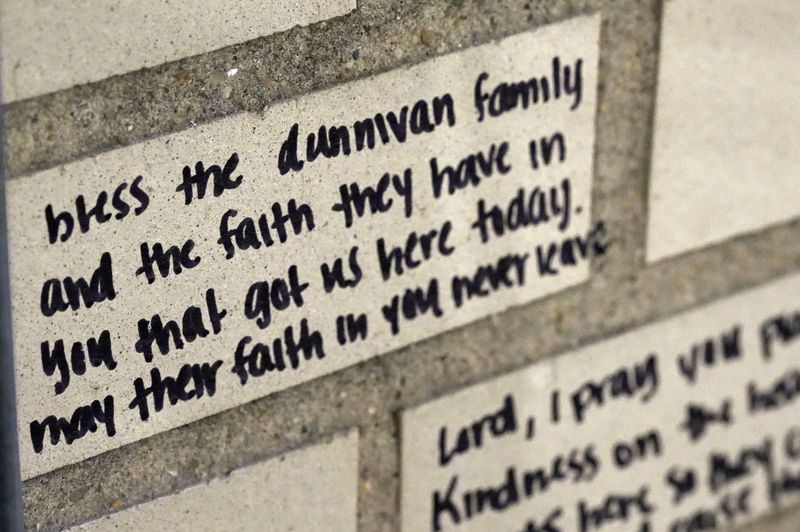 bless the dunnivan family
and the faith they have in
you that got us here today.
may their faith in you never leave
Lord, I pray you
Kindness on the
here so they